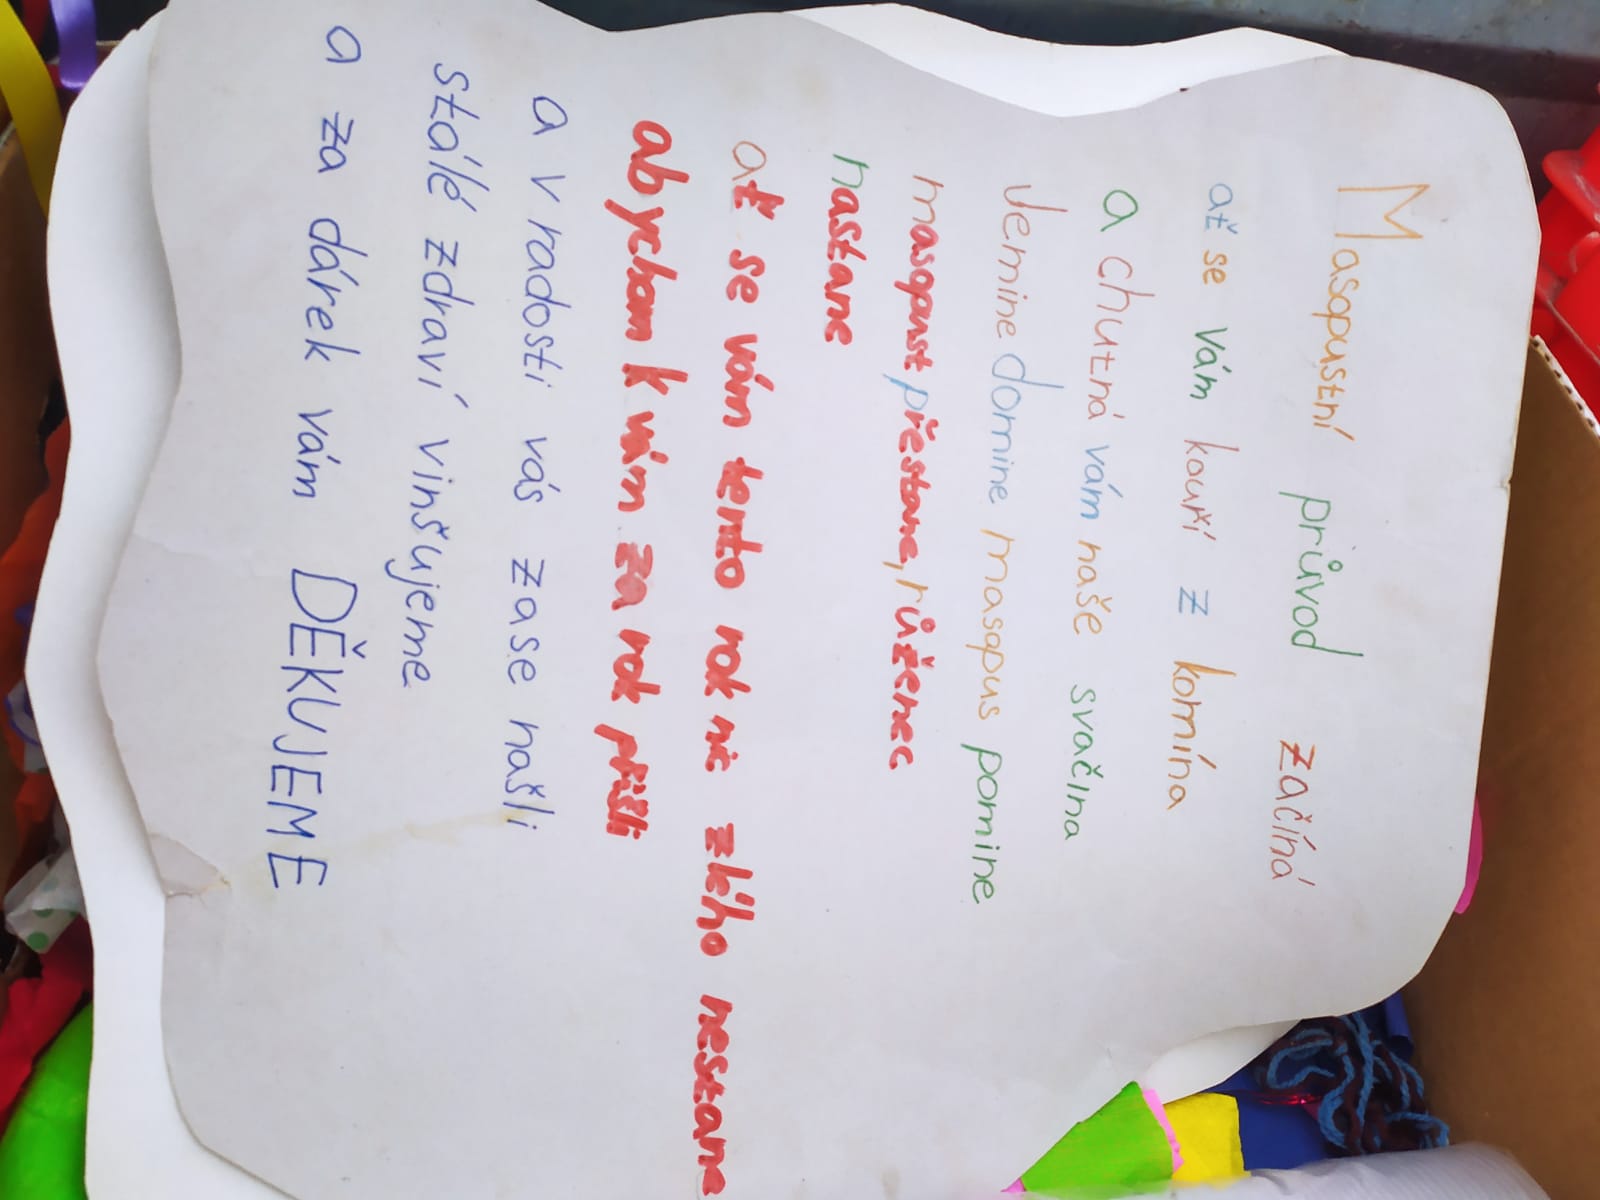 Masopustní průvod začíná
ať se vám kouří z komína
a chutná vám naše svačina
Jemine domine masopus pomine
masopust přestane, růženec
nastane
ať se vám tento rok nic zlého nestane
abychom k vám za rok přišli
a v radosti vás zase našli
stálé zdraví vinšujeme
a za dárek vám DĚKUJEME